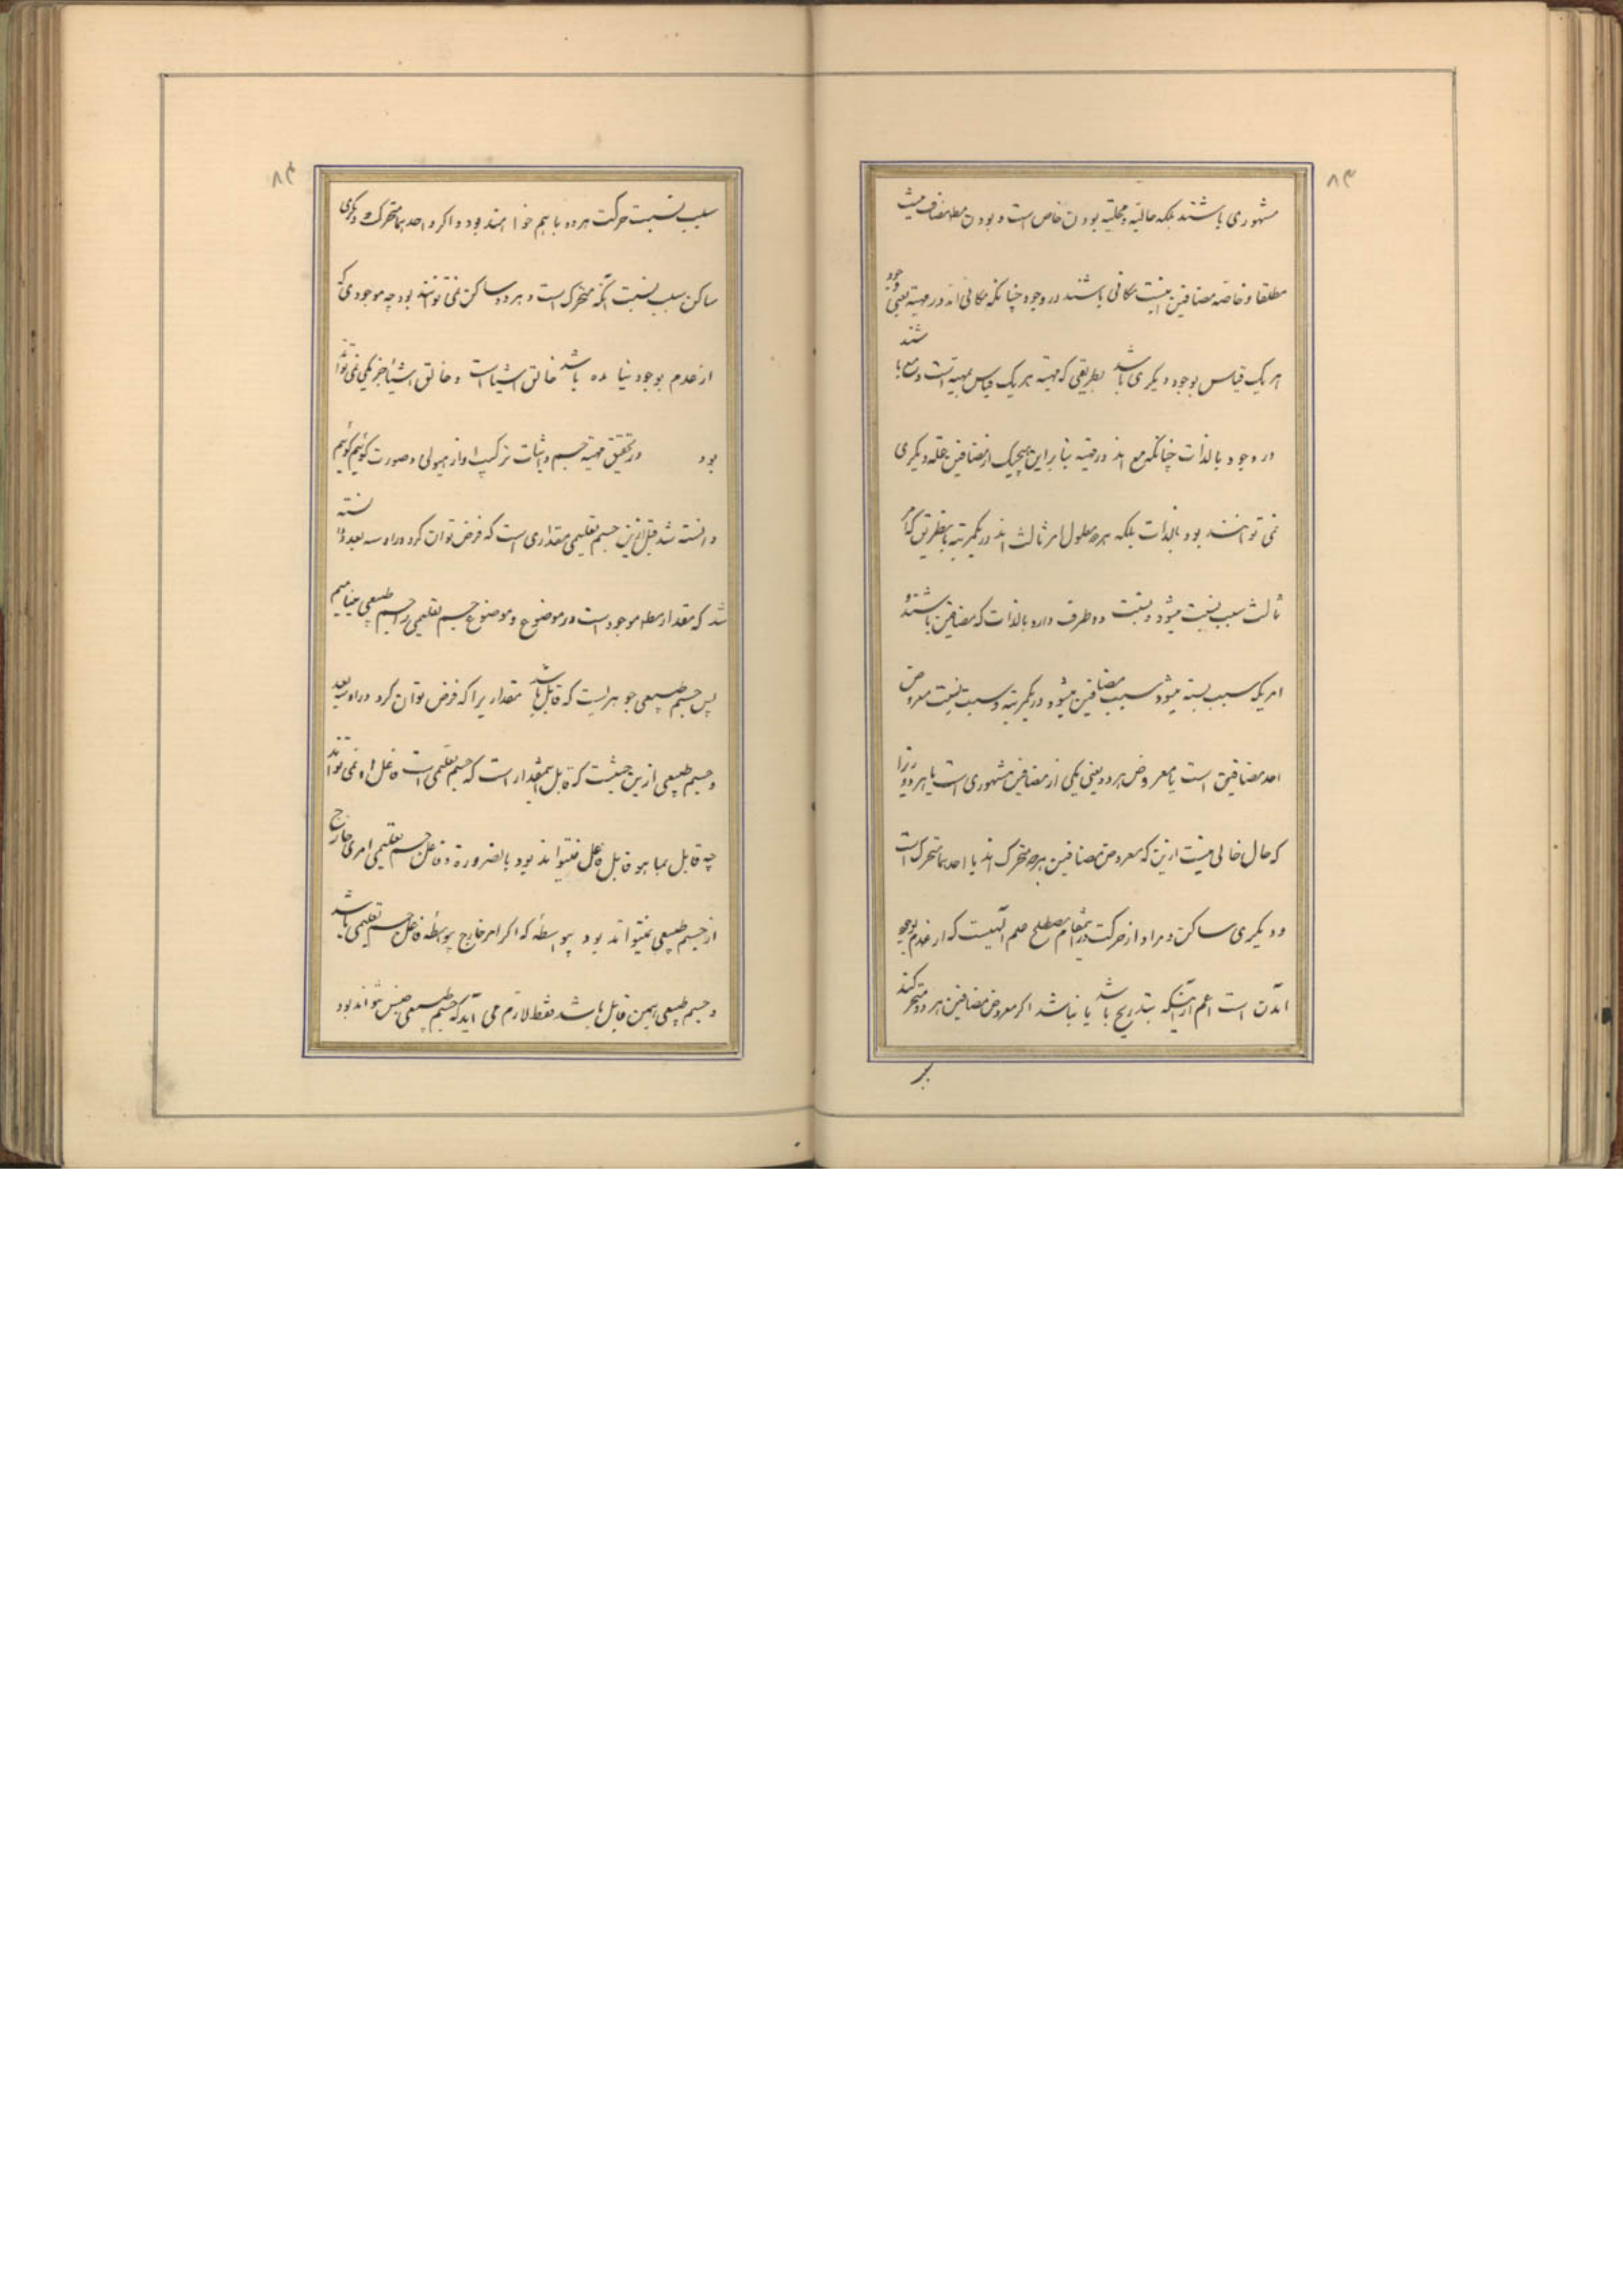 ۸۳
مشهوری باشند بلکه حالیّه و محلیّه بودن خاص است و بودن مطلا مضاف نیست
مطلقا و خاصه مضافین اینست مکافی باشند در وجود چنانکه مکافی اند در مهیته یعنی وجود
هر یک قیاس بوجود دیگری باشد بطریقی که مهیته هر یک قیاس بمهیته است و مع باشند
در وجود بالذات چنانکه مع اند در مهیته بنا براین هیچیک از مضافین علته دیگری
نمی توانند بود بالذات بلکه هر دو معلول امر ثالث اند در یکمرتبه باینطریق که امر
ثالث سبب نسبت میشود و نسبت دو طرف دارد بالذات که مضافین باشند و
امریکه سبب نسبته میشود سبب مضافین میشود در یکمرتبه و سبب نسبت معروض
احد مضافین است یا معروض هر دو یعنی یکی از مضافین مشهوری است یا هر دو زیرا
که حال خالی نیست ازین که معروض مضافین هر دو متحرک اند یا احدهما متحرک است
و دیگری ساکن و مراد از حرکت درینمقام مصطلح علم الهیست که از عدم بوجود
آمدن است اعم ازآنکه بتدریج باشد یا نباشد اگر معروض مضافین هر دو متحرکند
۸۴
سبب نسبت حرکت هر دو با هم خواهند بود و اگر احدهما متحرک و دیگری
ساکن سبب نسبت آنکه متحرک است و هر دو ساکن نمی توانند بود چه موجودی که
از عدم بوجود نیامده باشد خالق اشیا است و خالق اشیا جز یکی نمی تواند
بود در تحقیق مهیته جسم و اثبات ترکیب او از هیولی و صورت گوئیم گوئیم
دانسته شد قبل ازین جسم تعلیمی مقداری است که فرض توان کرد در او سه بعد و دانسته
شد که مقدار مطلا موجود است در موضوع و موضوع جسم تعلیمی را جسم طبیعی مینامیم
پس جسم طبیعی جوهریست که قابل باشد مقداریرا که فرض توان کرد در او سه بعد
و جسم طبیعی ازین حیثیت که قابل اینمقدار است که جسم تعلیمی است فاعل او نمی تواند
چه قابل بما هو قابل فاعل نمیتواند بود بالضرورة و فاعل جسم تعلیمی امری خارج
از جسم طبیعی نمیتواند بود بواسطه که اگر امر خارج بواسطه فاعل جسم تعلیمی باشد
و جسم طبیعی همین قابل باشد فقط لازم می آید که جسم طبیعی جنس تواند بود